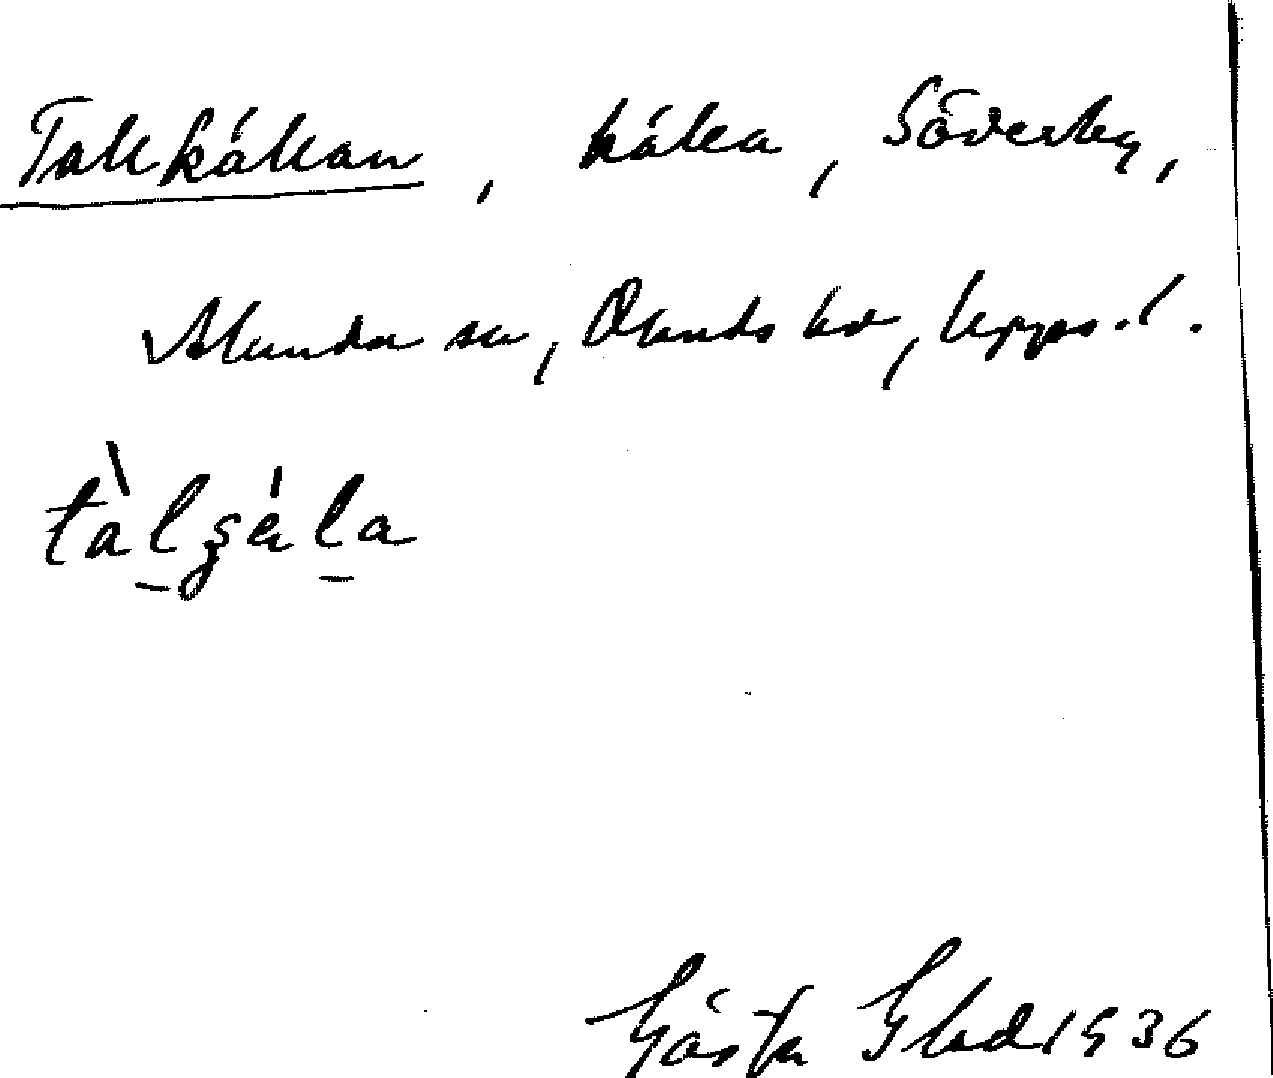 Tallkällan, källa, Söderby,
Alunda sn, Olands hd, Upps. l.
Gösta Glad 1936